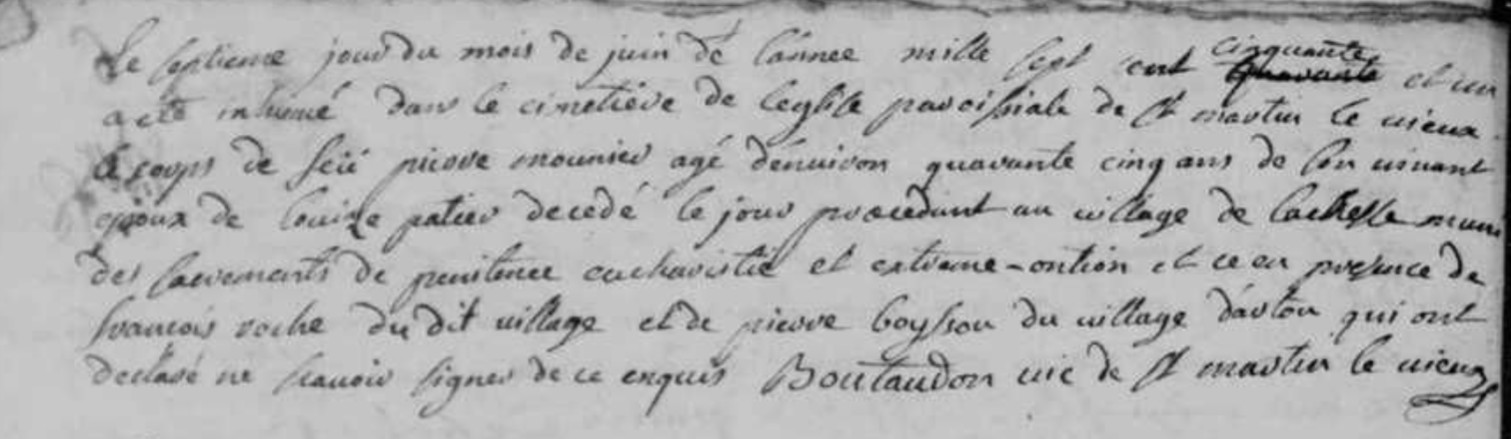 Le septieme jour du mois de juin de l'annee mille sept cent cinquante quarante et un
a eté inhumé dans le cimetiére de leglise paroissiale de St martin le vieux
le corps de feü pierre mounier agé d'enuiron quarante cinq ans de son uiuant
epoux de louize patier decedé le jour præcedant au uillage de muni
des sacrements de penitence eucharistie et extreme-ontion et ce en presence de
francois roche du dit uillage et de pierre boysson du uillage d'arton qui ont
declaré ne scauoir signer de ce enquis Boutaudon uic de St martin le uieux